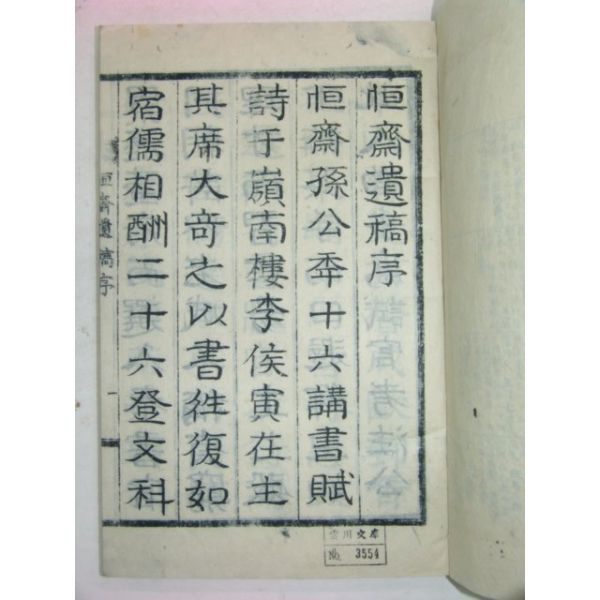 恒齋遺稿序
恒齋孫公年十六講書賦
詩于嶺南樓李侯寅在主
其席大奇之以書往復如
宿儒相酬二十六登文科
恒齋遺稿序
一
雲川文庫
No. 3554